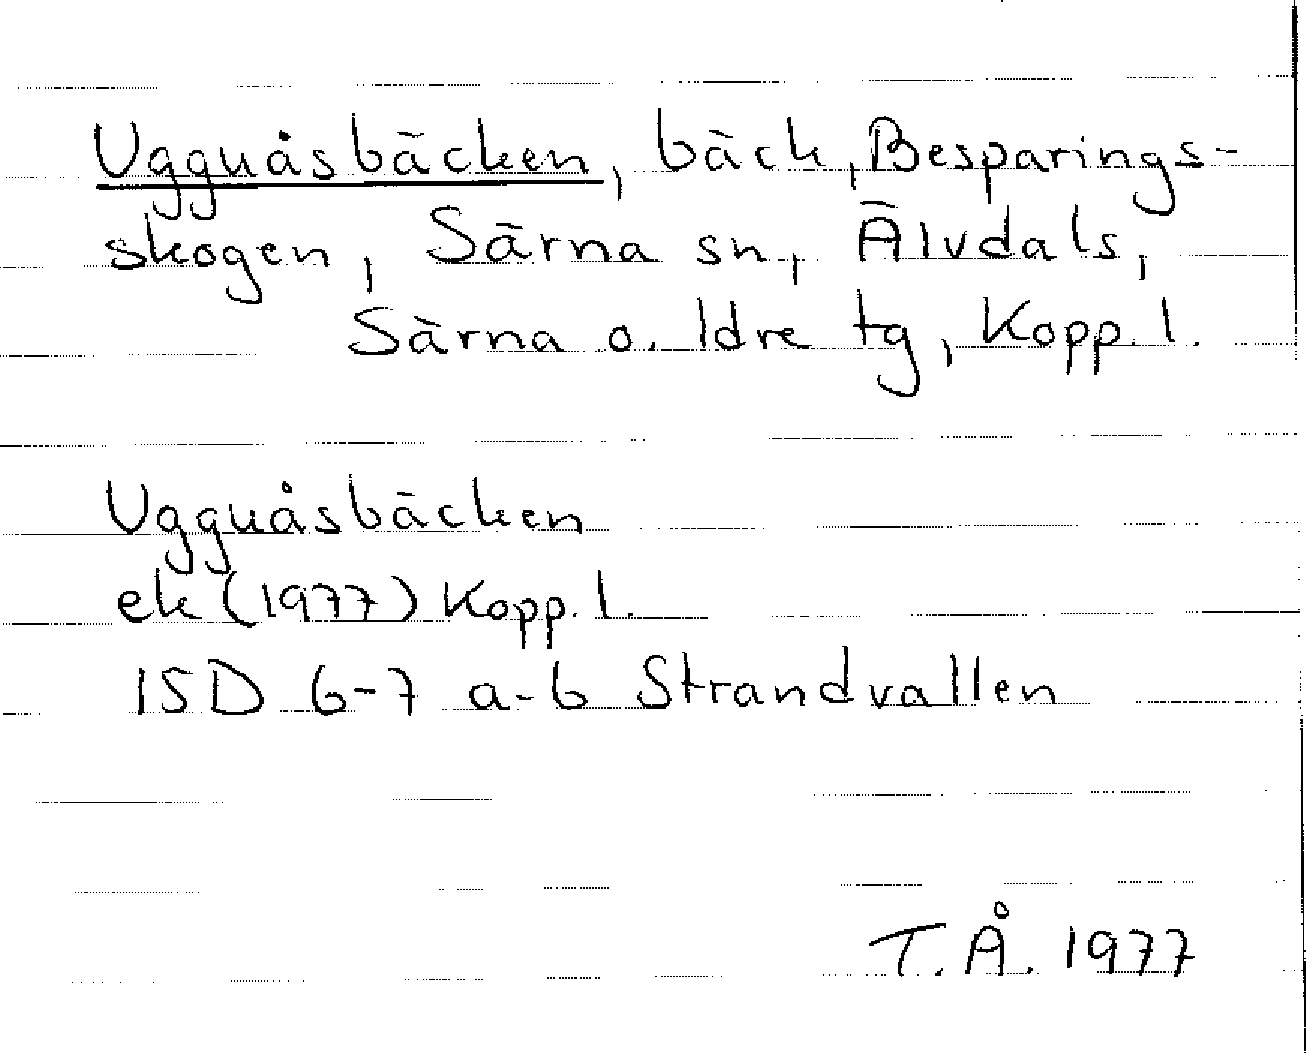 Ugguåsbäcken, bäck, Besparings-
skogen, Särna sn, Älvdals,
Särna o. Idre tg, Kopp. l.
Ugguåsbäcken
ek (1977) Kopp. l.
15D 6-7 a-b Strandvallen
T.Å. 1977